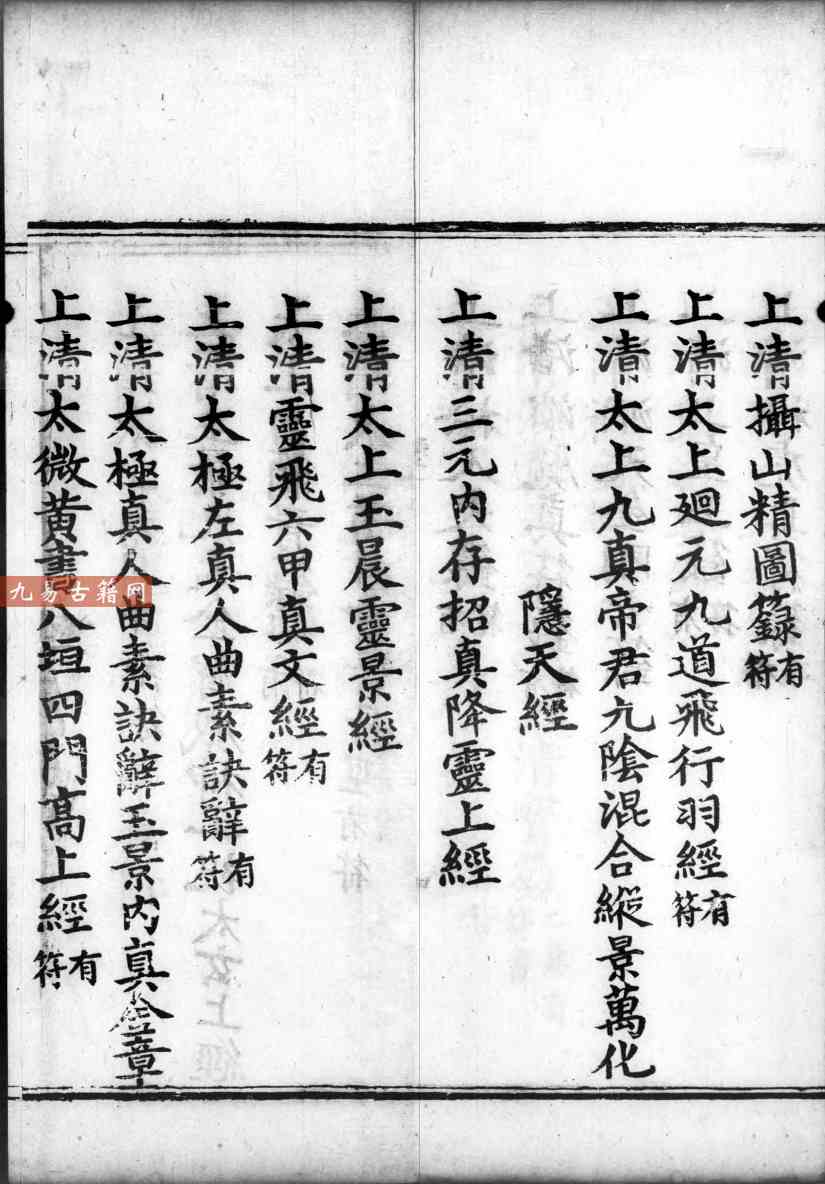 上清攝山精圖籙有符
上清太上廻元九道飛行羽經有符
上清太上九真帝君九陰混合縱景萬化
隱天經
上清三元内存招真降靈上經
上清太上玉晨靈景經
上清靈飛六甲真文經有符
上清太極左真人曲素訣辭有符
上清太極真人曲素訣辭玉景内真金章
上清太微黄書八垣四門高上經有符
九易古籍网